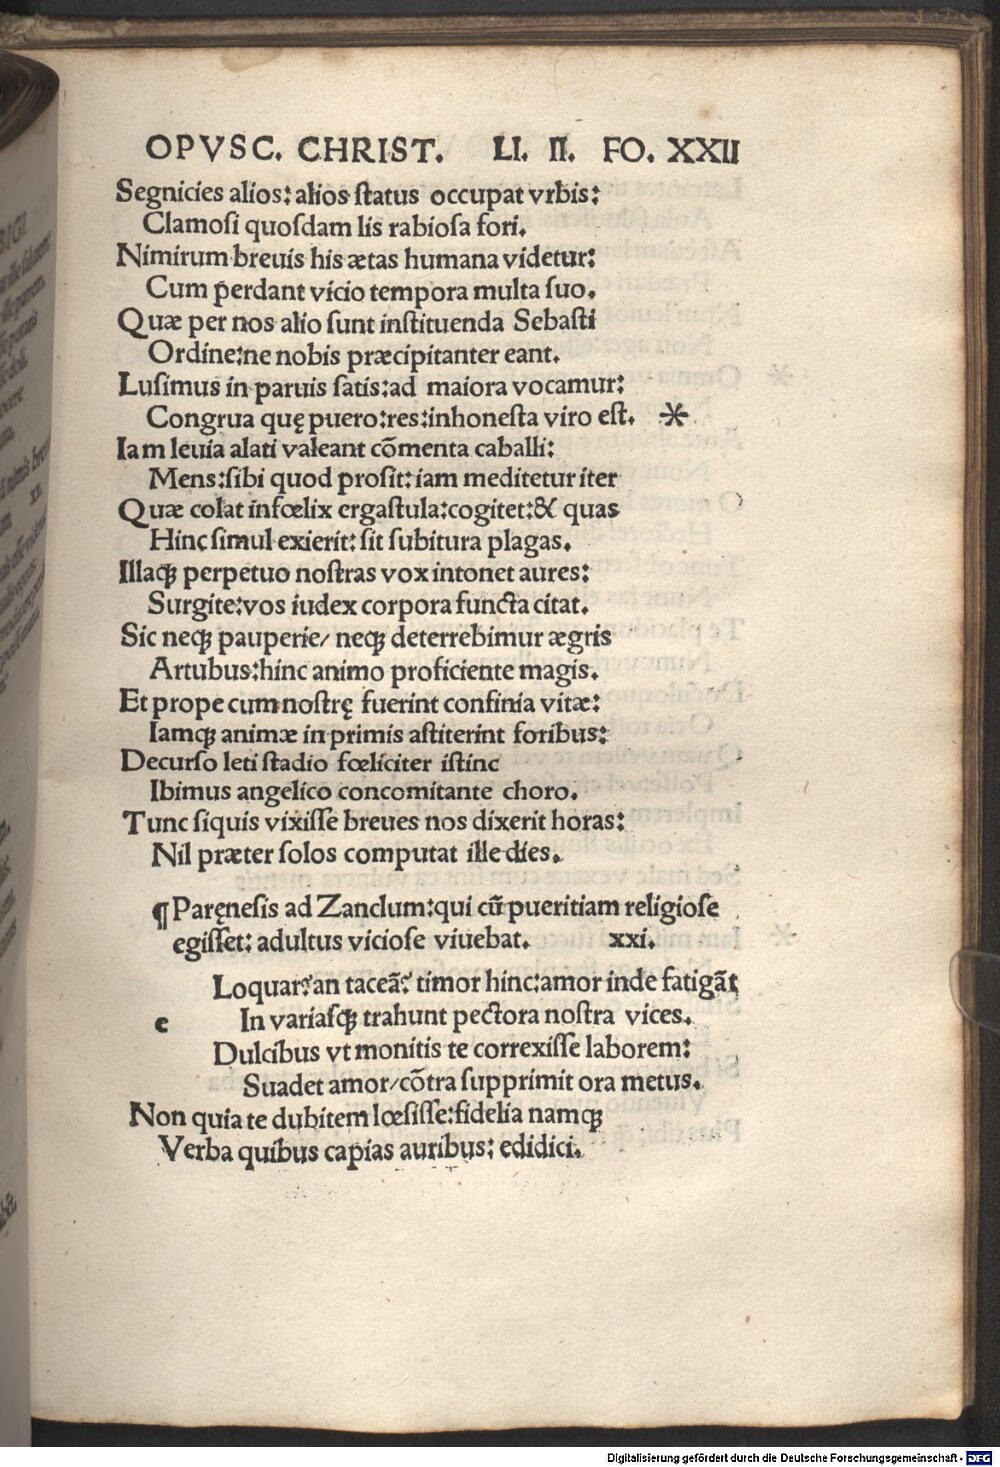 OPVSC. CHRIST. LI. II. FO. XXII
Segnicies alios: alios ſtatus occupat vrbis:
Clamoſi quoſdam lis rabioſa fori.
Nimirum breuis his ætas humana videtur:
Cum perdant vicio tempora multa ſuo.
Quæ per nos alio ſunt inſtituenda Sebaſti
Ordine:ne nobis præcipitanter eant.
Luſimus in paruis ſatis:ad maiora vocamur:
Congrua quę puero:res:inhoneſta viro eſt. *
Iam leuia alati valeant cōmenta caballi:
Mens:ſibi quod proſit:iam meditetur iter
Quæ colat infœlix ergaſtula:cogitet:& quas
Hinc ſimul exierit: ſit ſubitura plagas.
Illaqꝫ perpetuo noſtras vox intonet aures:
Surgite:vos iudex corpora functa citat.
Sic neqꝫ pauperie/ neqꝫ deterrebimur ægris
Artubus:hinc animo proficiente magis.
Et prope cum noſtrę fuerint confinia vitæ:
Iamqꝫ animæ in primis aſtiterint foribus:
Decurſo leti ſtadio fœliciter iſtinc
Ibimus angelico concomitante choro.
Tunc ſiquis vixiſſe breues nos dixerit horas:
Nil præter ſolos computat ille dies.
¶ Paręneſis ad Zanclum:qui cū pueritiam religioſe
egiſſet: adultus vicioſe viuebat. xxi.
Loquar?an taceā? timor hinc:amor inde fatigāt
e In variaſqꝫ trahunt pectora noſtra vices.
Dulcibus vt monitis te correxiſſe laborem:
Suadet amor/cōtra ſupprimit ora metus.
Non quia te dubitem lœſiſſe:fidelia namqꝫ
Verba quibus capias auribus: edidici.
Digitalisierung gefördert durch die Deutsche Forschungsgemeinschaft - DFG